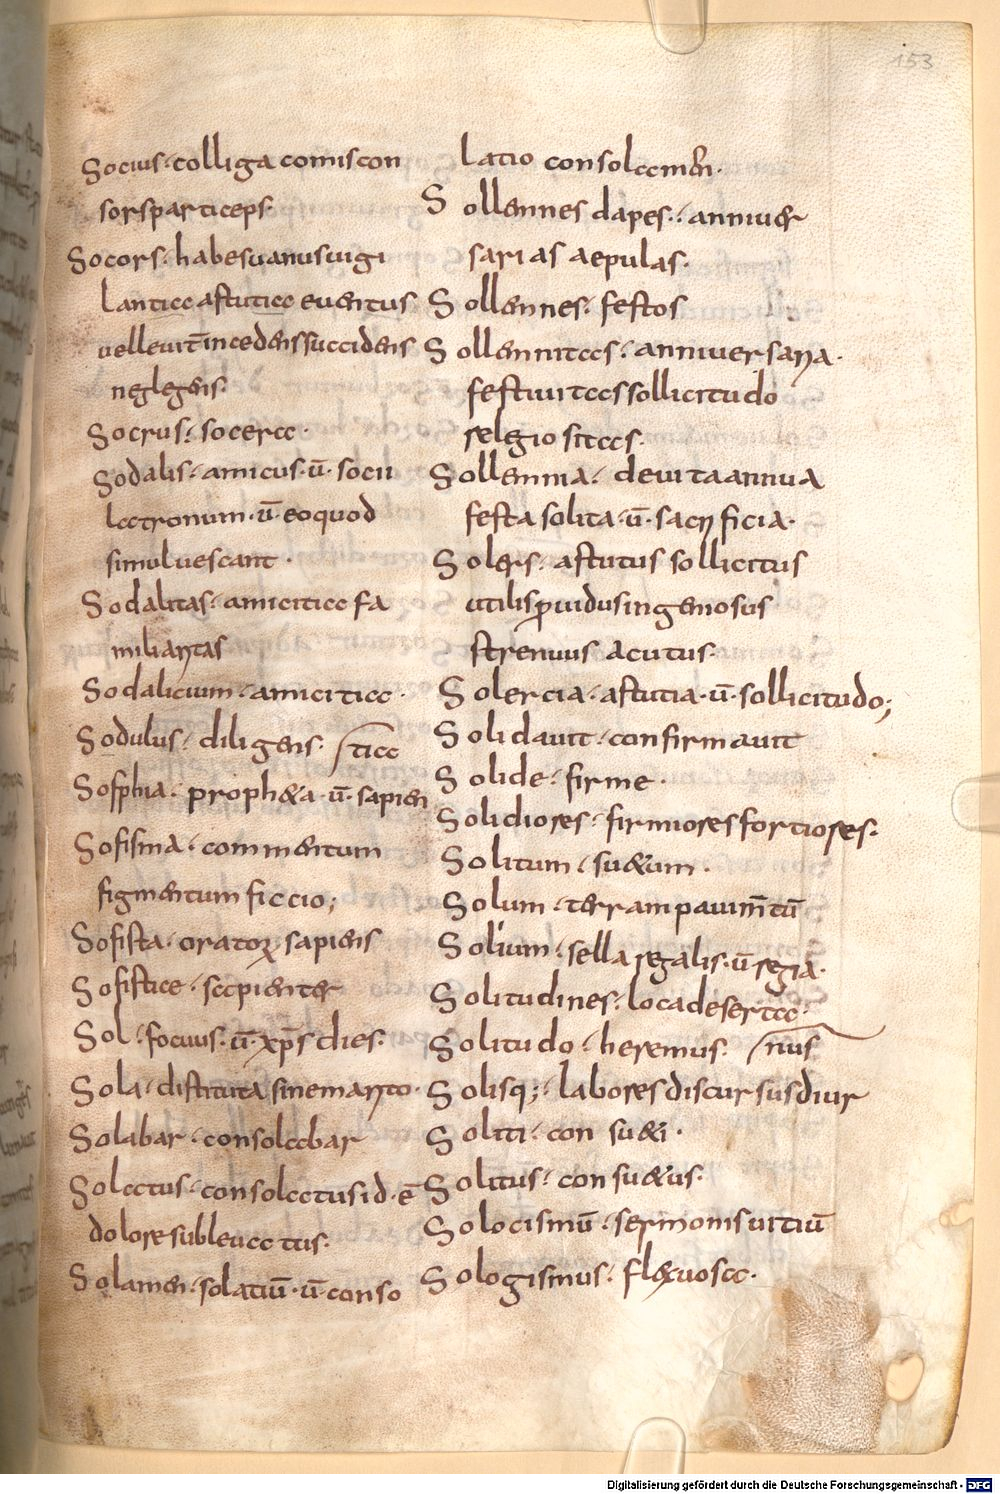 153
Socius· colliga comis con
sors particeps·
Socors· habes uanus uigi
lantia astutia euentus
uelleuit incedens succidens
neglegens·
Socrus· socera·
Sodalis· amicus· ū· socii
latronum· ū· eo quod
simul uescant·
Sodalitas· amicitia fa
miliaritas
Sodalicium· amicitia·
Sodulus· diligens· tiae
Sofphia· propheta· ū· sapien
Sofisma· commentum
figmentum ficcio;
Sofista· orator sapiens
Sofistice· sapienter
Sol· focuus· ū· xp̄s dies·
Sola· distituta sine marito·
Solabar· consolabar
Solatus· consolatus id· ē
dolore subleuatus·
Solamen· solatiū· ū· conso
latio consolam̄·
Sollennes dapes· anniuer
sarias aepulas·
Sollennes· festos
Sollennitas· anniuersaria·
festiuitas sollicitudo
relegiositas·
Sollemnia· deuita annua
festa solita· ū· sacrificia·
Solers· astutus sollicitus
utilis ꝓuidus ingeniosus
strenuus acutus·
Solercia· astutia· ū· sollicitudo;
Solidauit· confirmauit
Solide· firme·
Solidiores· firmiores fortiores·
Solitum· suetum·
Solum· terram pauim̄tū
Solium· sella regalis· ū regia·
Solitudines· loca deserta·
Solitudo· heremus· nus
Solisq;· labores discursus diur
Soliti· con sueti·
Solitus· con suetus·
Solocismū· sermonis uitiū
Sologismus· flexuosa·
Digitalisierung gefördert durch die Deutsche Forschungsgemeinschaft - DFG